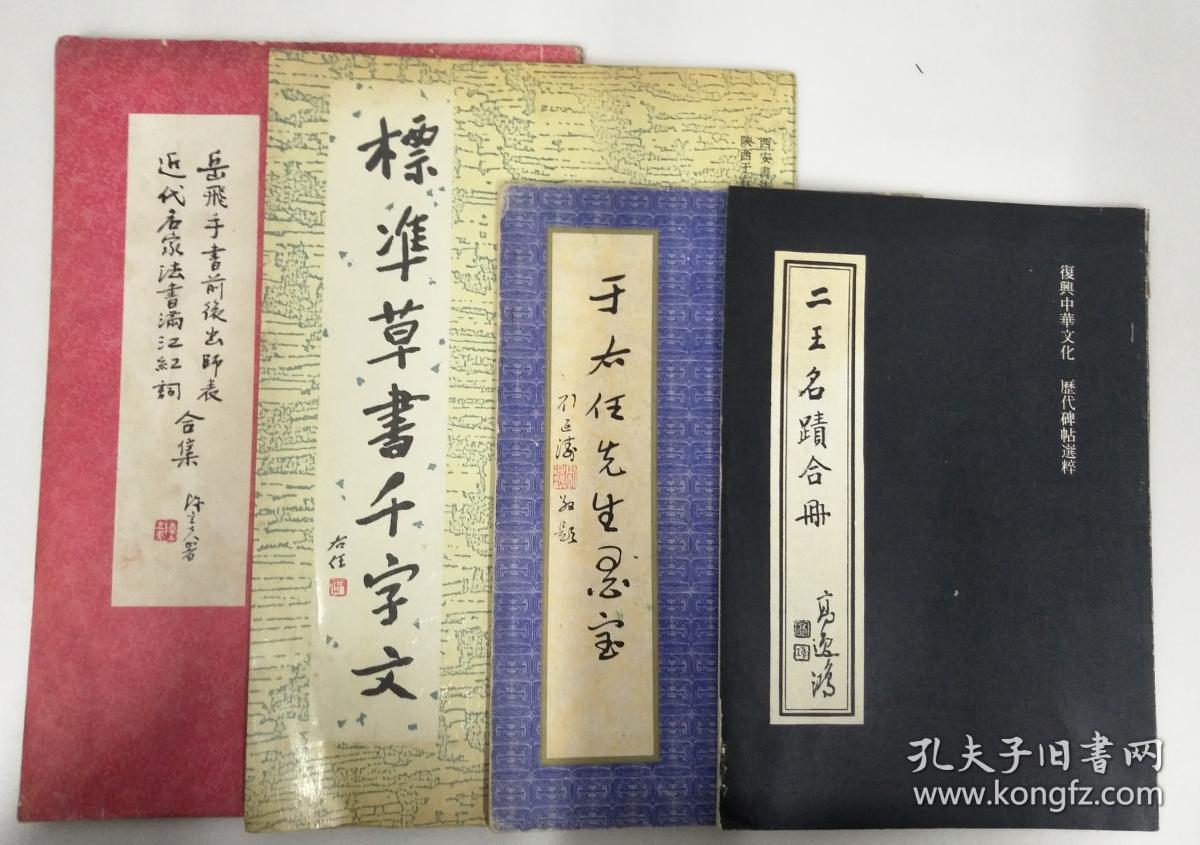 岳飛手書前後出師表
近代名家法書滿江紅詞
合集
標準草書千字文
右任
西安書法
陝西于右
于右任先生墨宝
敬題
二王名蹟合冊
高逸鴻
復興中華文化 歷代碑帖選粹
孔夫子旧书网
www.kongfz.com